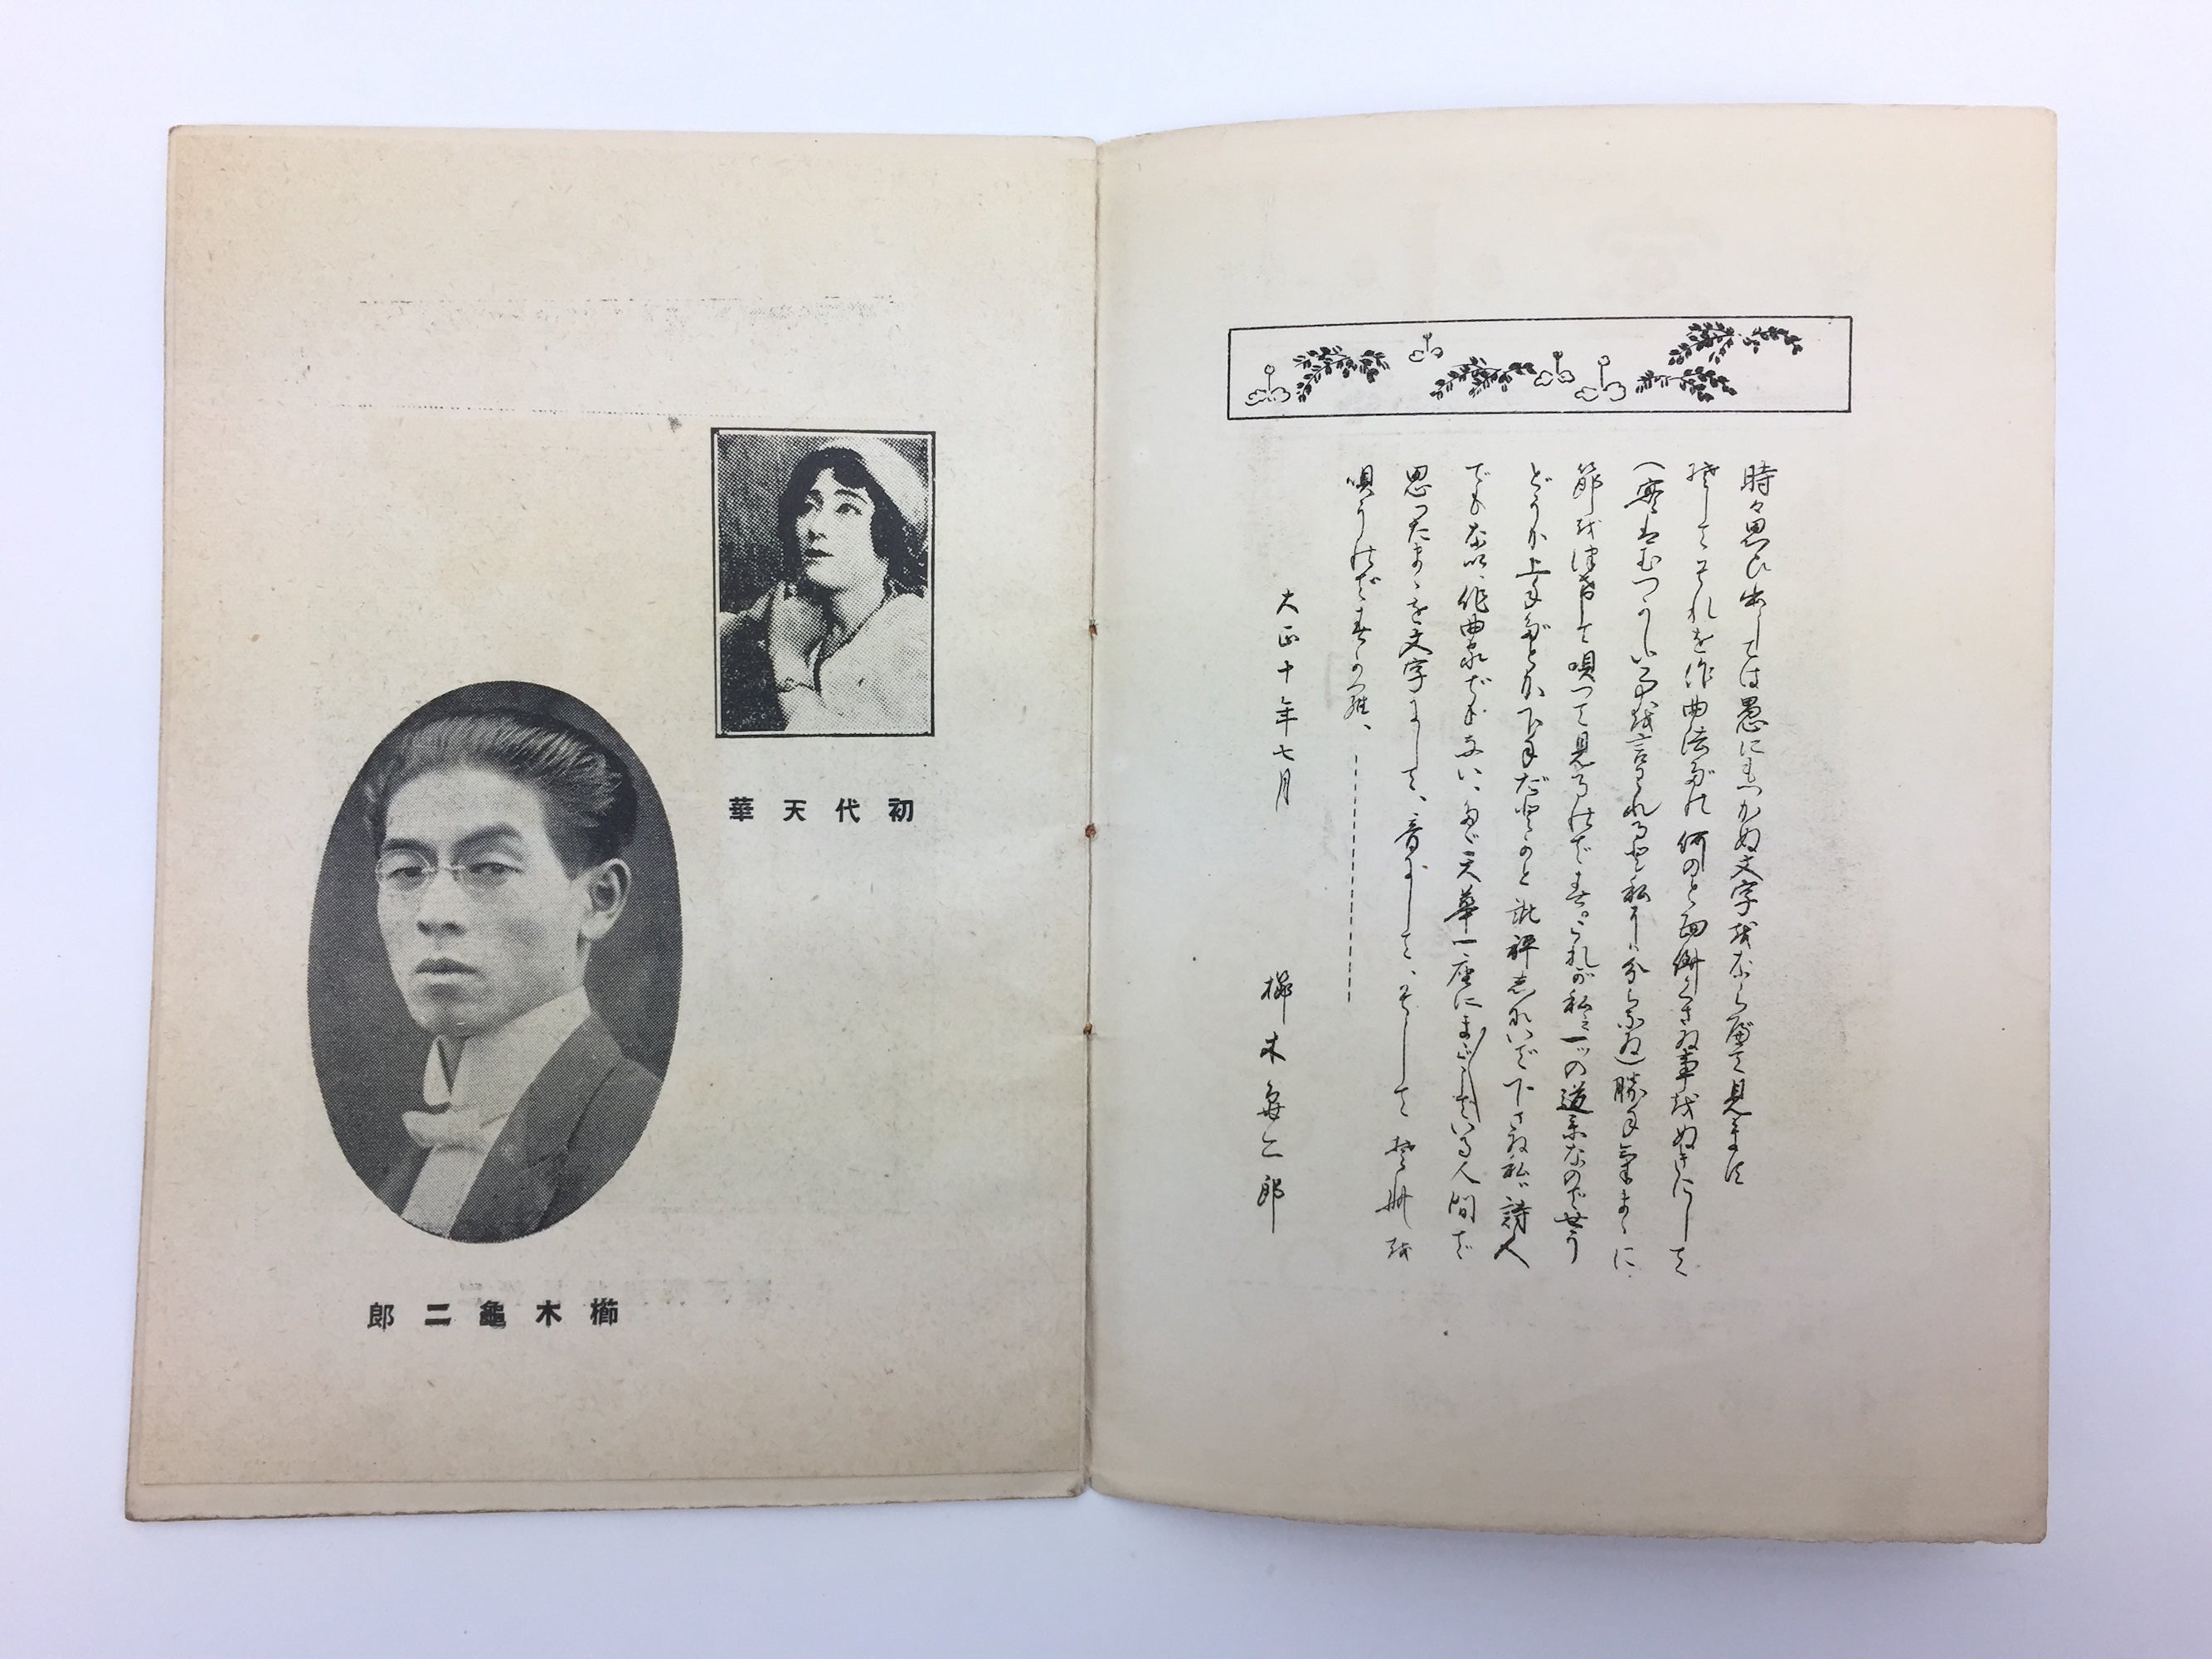 時々思ひ出しては愚にもつかぬ文字をならべて見ます
そしてそれを作曲法だの何のと面倒くさい事をぬきにして
(実はむつかしい事を言はれると私には分らない)勝手気まゝに
節をつけて唄つて見るのです。これが私の一つの道楽なのでせう
どうか上手だとか下手だとかと批評しないで下さい私は詩人
でもない、作曲家でもない、たゞ天華一座にまご〱している人間で
思つたまゝを文字にして、音にして、そして
唄うのです
大正十年七月
櫛木亀二郎
初代天華
櫛木龜二郎